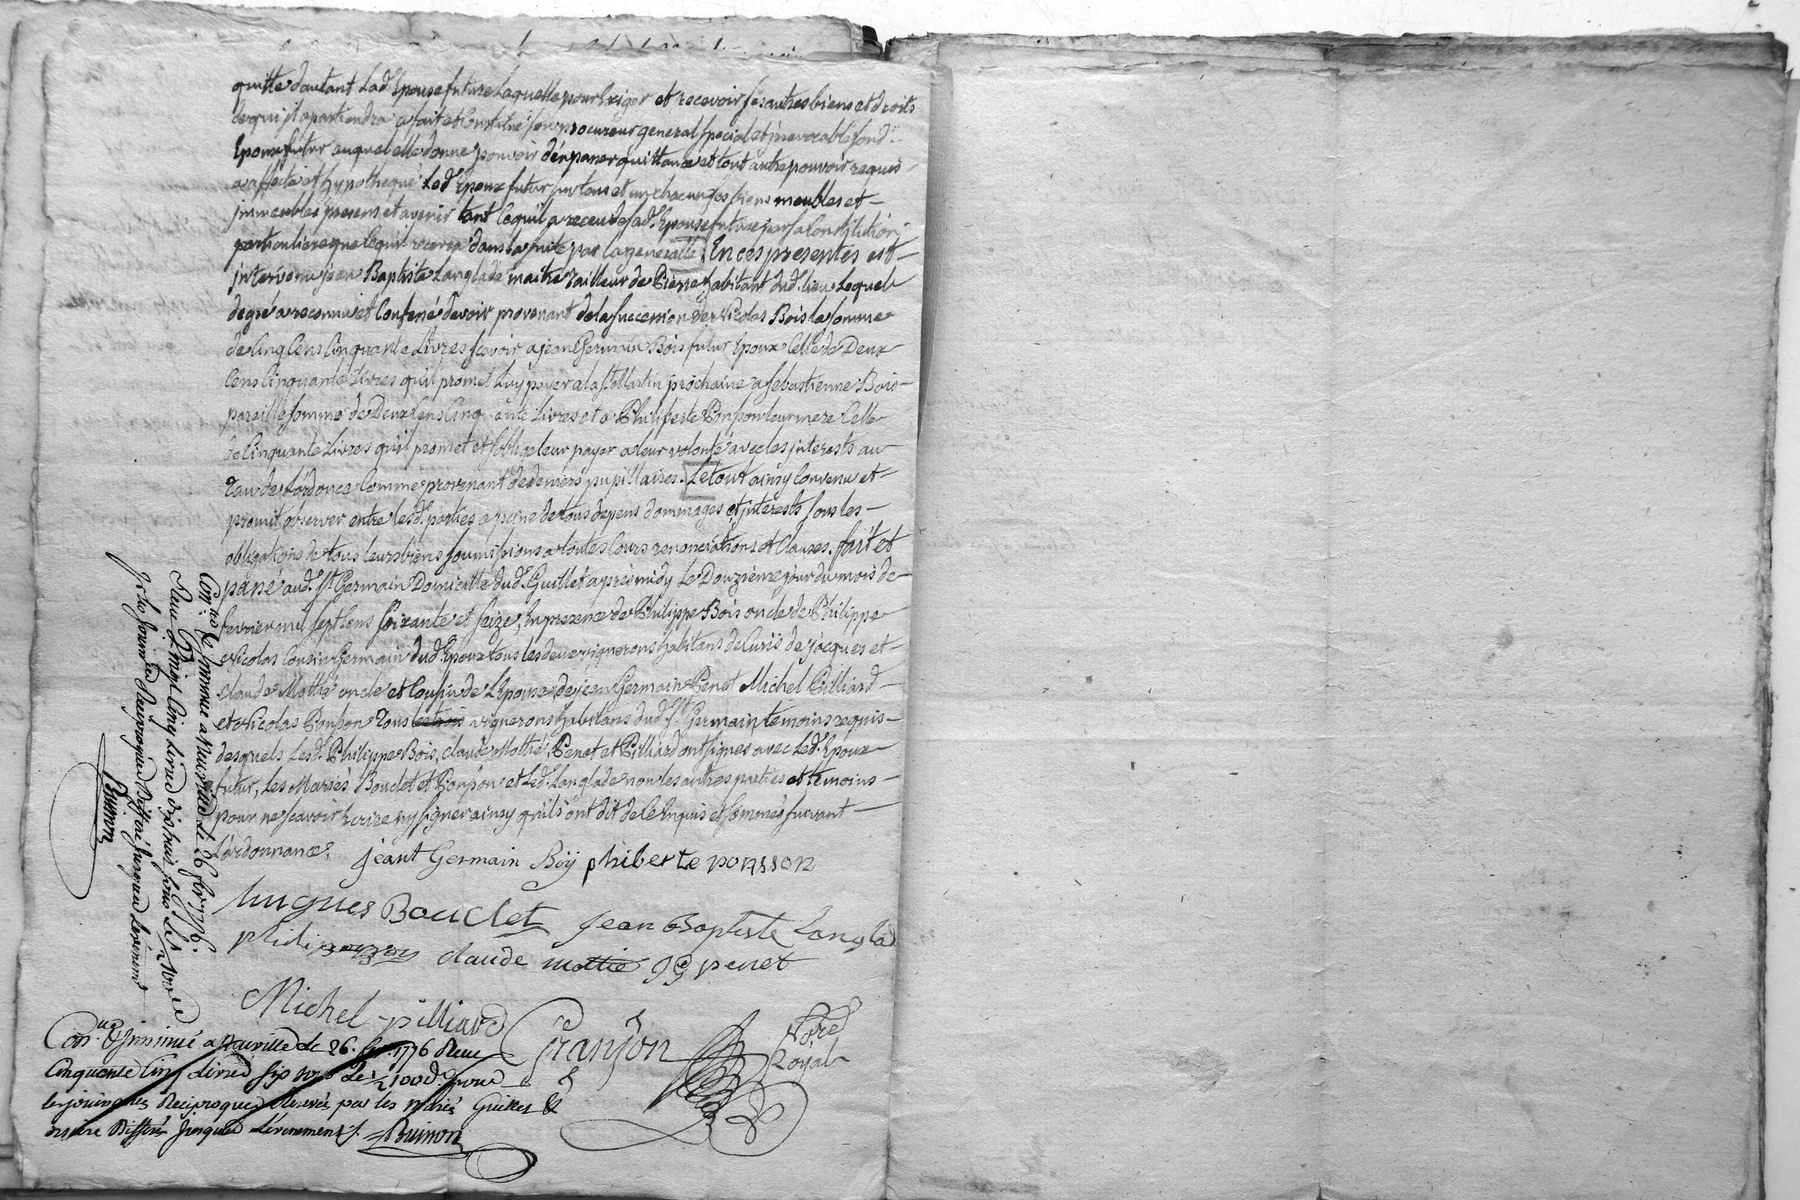 quitte dautant Lad. Epouse future Laquelle pour Exiger et recevoir ses autres biens et droits
de qui il apartiendra a fait et Constitué son procureur general special et irrevocable Led.
Epoux futur auquel elle donne pouvoir d'en passer quittance et tout autre pouvoir requis
a affecté et hypothequé Led. Epoux futur sur tous et un chacun ses biens meubles et
immeubles presens et avenir tant ce qu'il a receu de Lad. Epouse future par sa Constitution
particuliere que ce qu'il recevra dans la suite par la generalle, En ces presentes est
intervenu jean Baptiste Langlade maitre Tailleur de Pierre habitant dud. lieu Lequel
de gré a reconnu et Confessé devoir provenant de la succession de Nicolas Bois la somme
de Cinq Cens Cinquante Livres scavoir a jean Germain Bois futur Epoux Celle de Deux
Cens Cinquante Livres qu'il promet Luy payer a la St. Martin prochaine a Sebastienne Bois
pareille somme de Deux Cens Cinq ante Livres et a Philiberte Ponson leur mere Celle
de Cinquante Livres qu'il promet et s'oblige leur payer a leur volonté avec les interests au
Taux de L'ordonce Comme provenant de deniers pupillaires. Le tout ainsy Convenu et
promit observer entre lesd. parties a peine de tous depens dommages et interests sous les
obligations de tous leurs biens soumissions a toutes Cours renonciations et Clauses. fait et
passé aud. St. Germain Domicille dud. Guillet apres midy Le Douzieme jour du mois de
fevrier mil sept Cens soixante et seize, En presence de Philippe Bois oncle de Philippe
Nicolas Cousin Germain dud. Epoux tous les deux vignerons habitans de Curis de jacques et
Claude Mottié oncle et Cousin de L'Epouse, de jean Germain Penet Michel Pilliard
et Nicolas Ponson Tous les trois vignerons habitans dud. St. Germain, temoins requis
desquels Lesd. Philippe Bois, Claude Mottié, Penet et Pilliard ont signés avec Led. Epoux
futur, Les Mariés Bouclet et Ponson et Led. Langlade non les autres parties et temoins
pour ne scavoir Ecrire ny signer ainsy qu'ils ont dit de ce Enquis et sommés suivant
L'ordonnance.
jeant Germain Boÿ philiberte ponsson
hugues Bouclet Jean Baptiste Langlad
claude mottié JG penet
Michel pilliard
Granjon Nore Royal
Con.lé & Insinué a Neuville le 26. fev. 1776 Receu
Cinquante Cinq Livres six sols
reciproques par les mariés Guillet &
Differé jusques L'evenement
Buinon
Con.lé & Insinué a Neuville le 26 fev 1776.
Receu Cinq Livres
jusques L'evenement
Buinon